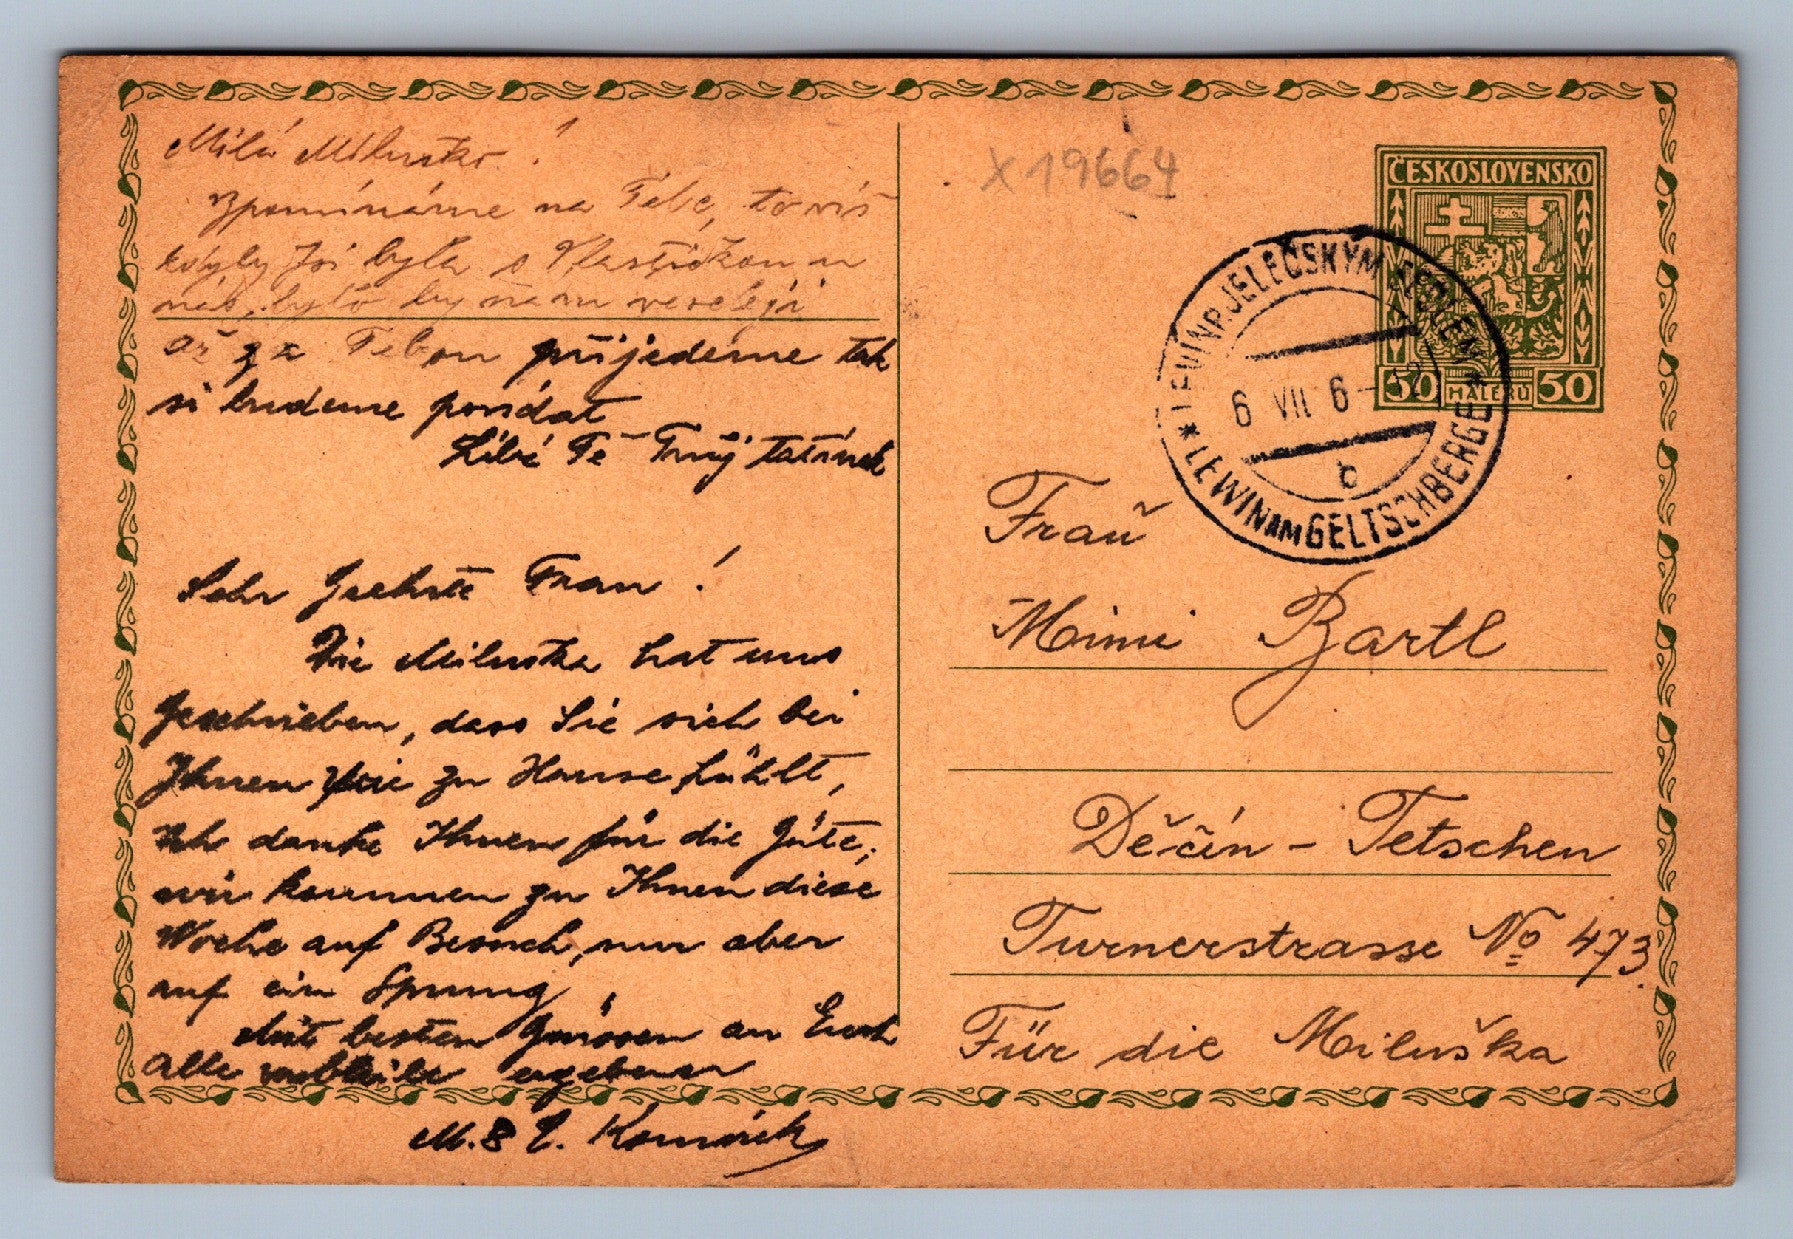 Milá Miluško!
Vzpomínáme na Tebe, to víš
kdyby jsi byla s Vlastičkou u
nás, bylo by nám veseleji
až za Tebou přijedeme tak
si budeme povídat
Líbá Tě Tvůj tatínek
Sehr Geehrte Frau!
Die Miluška hat uns
Geschrieben, dass Sie sich bei
Ihnen wie zu Hause fühlt,
ich danke Ihnen für die Güte,
wir kommen zu Ihnen diese
Woche auf Besuch, nur aber
auf ein Sprung,
Mit besten Grüssen an Euch
Alle ergebener
M. & J.
X 19664
ČESKOSLOVENSKO
50 HALÉŘŮ 50
LEVÍN P. JELEČSKÝM SEDLEM
6 VII 6
LEWIN AM GELTSCHBERGE
Frau
Mimi Bartl
Děčín - Tetschen
Turnerstrasse No 473
Für die Miluška